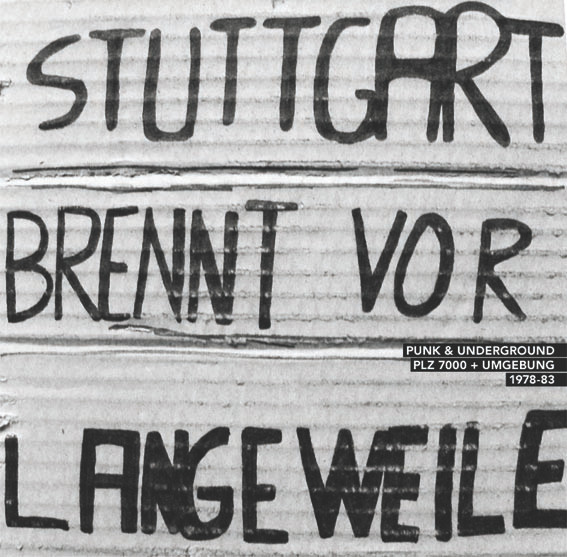 STUTTGART
BRENNT VOR
LANGEWEILE
PUNK & UNDERGROUND
PLZ 7000 + UMGEBUNG
1978-83